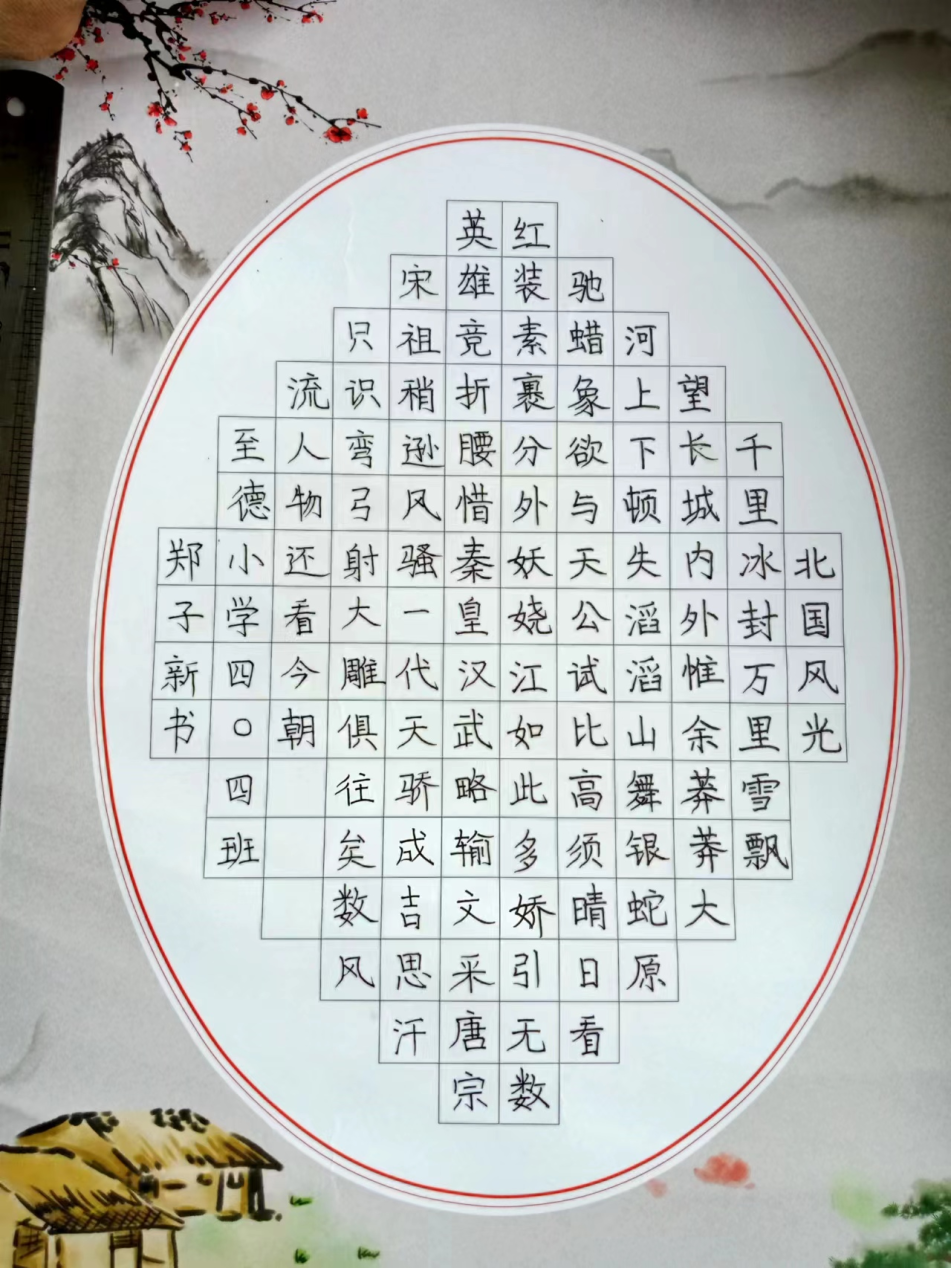 北国风光
千里冰封万里雪飘
望长城内外惟余莽莽大
河上下顿失滔滔山舞银蛇原
驰蜡象欲与天公试比高须晴日看
红装素裹分外妖娆江如此多娇引无数
英雄竞折腰惜秦皇汉武略输文采唐宗
宋祖稍逊风骚一代天骄成吉思汗
只识弯弓射大雕俱往矣数风
流人物还看今朝
至德小学四〇四班
郑子新书